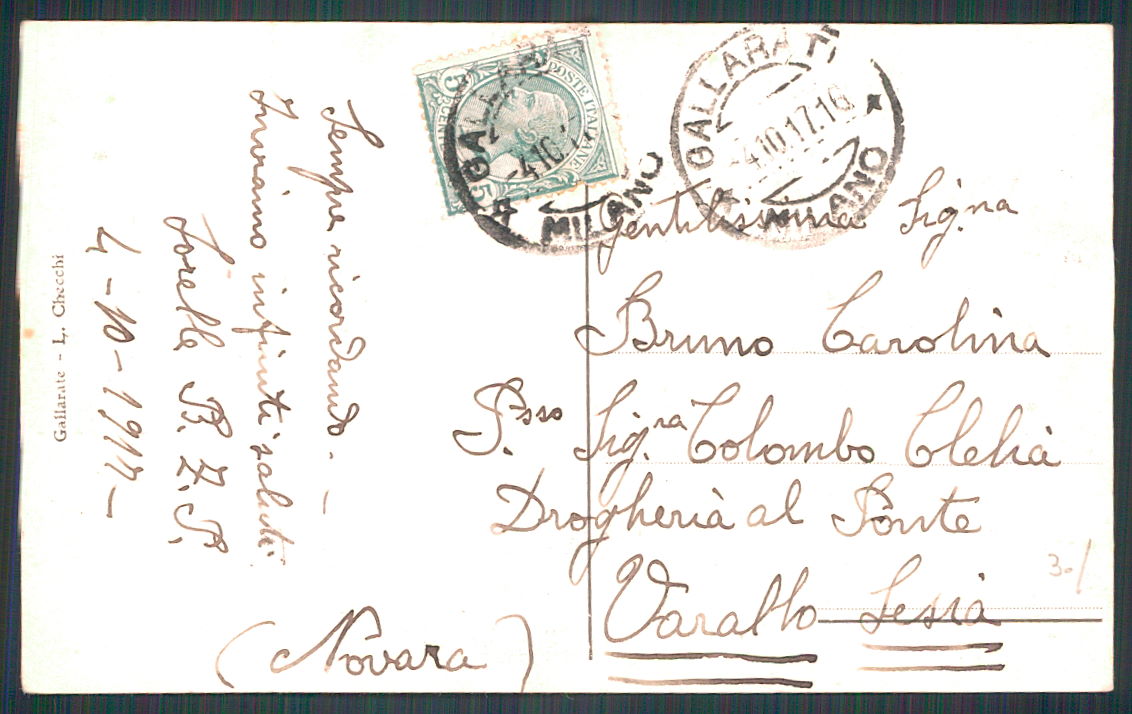 Sempre ricordando. –
Inviamo infiniti saluti.
Sorella B. Z. P.
4–10–1917–
Gallarate – L. Checchi
POSTE ITALIANE
5 CENT 5
GALLARA
-4.10.1
MILANO
GALLARATE
-4.10.17.16
MILANO
Gentilissima Sig.na
Bruno Carolina
P.sso Sig.ra Colombo Clelià
Drogherià al Ponte
Varallo Sesià
(Novara)
30/